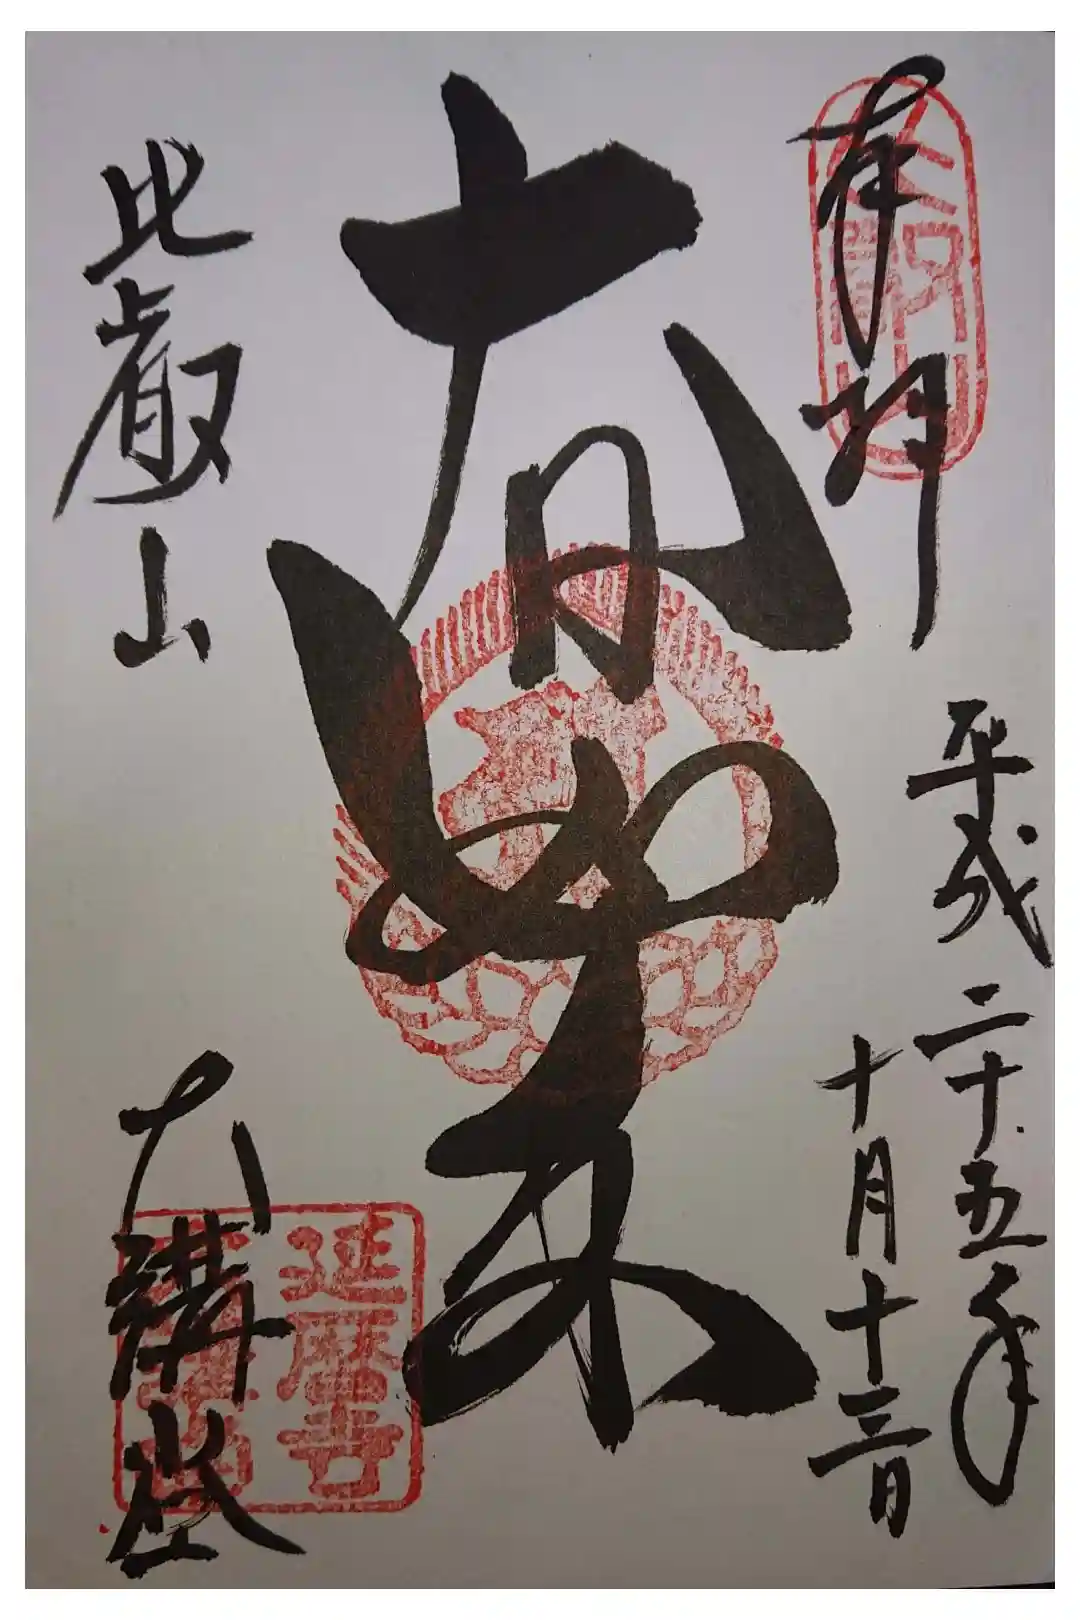 奉拝
平成二十五年
十月十三日
大日如来
比叡山
大講堂
延暦寺